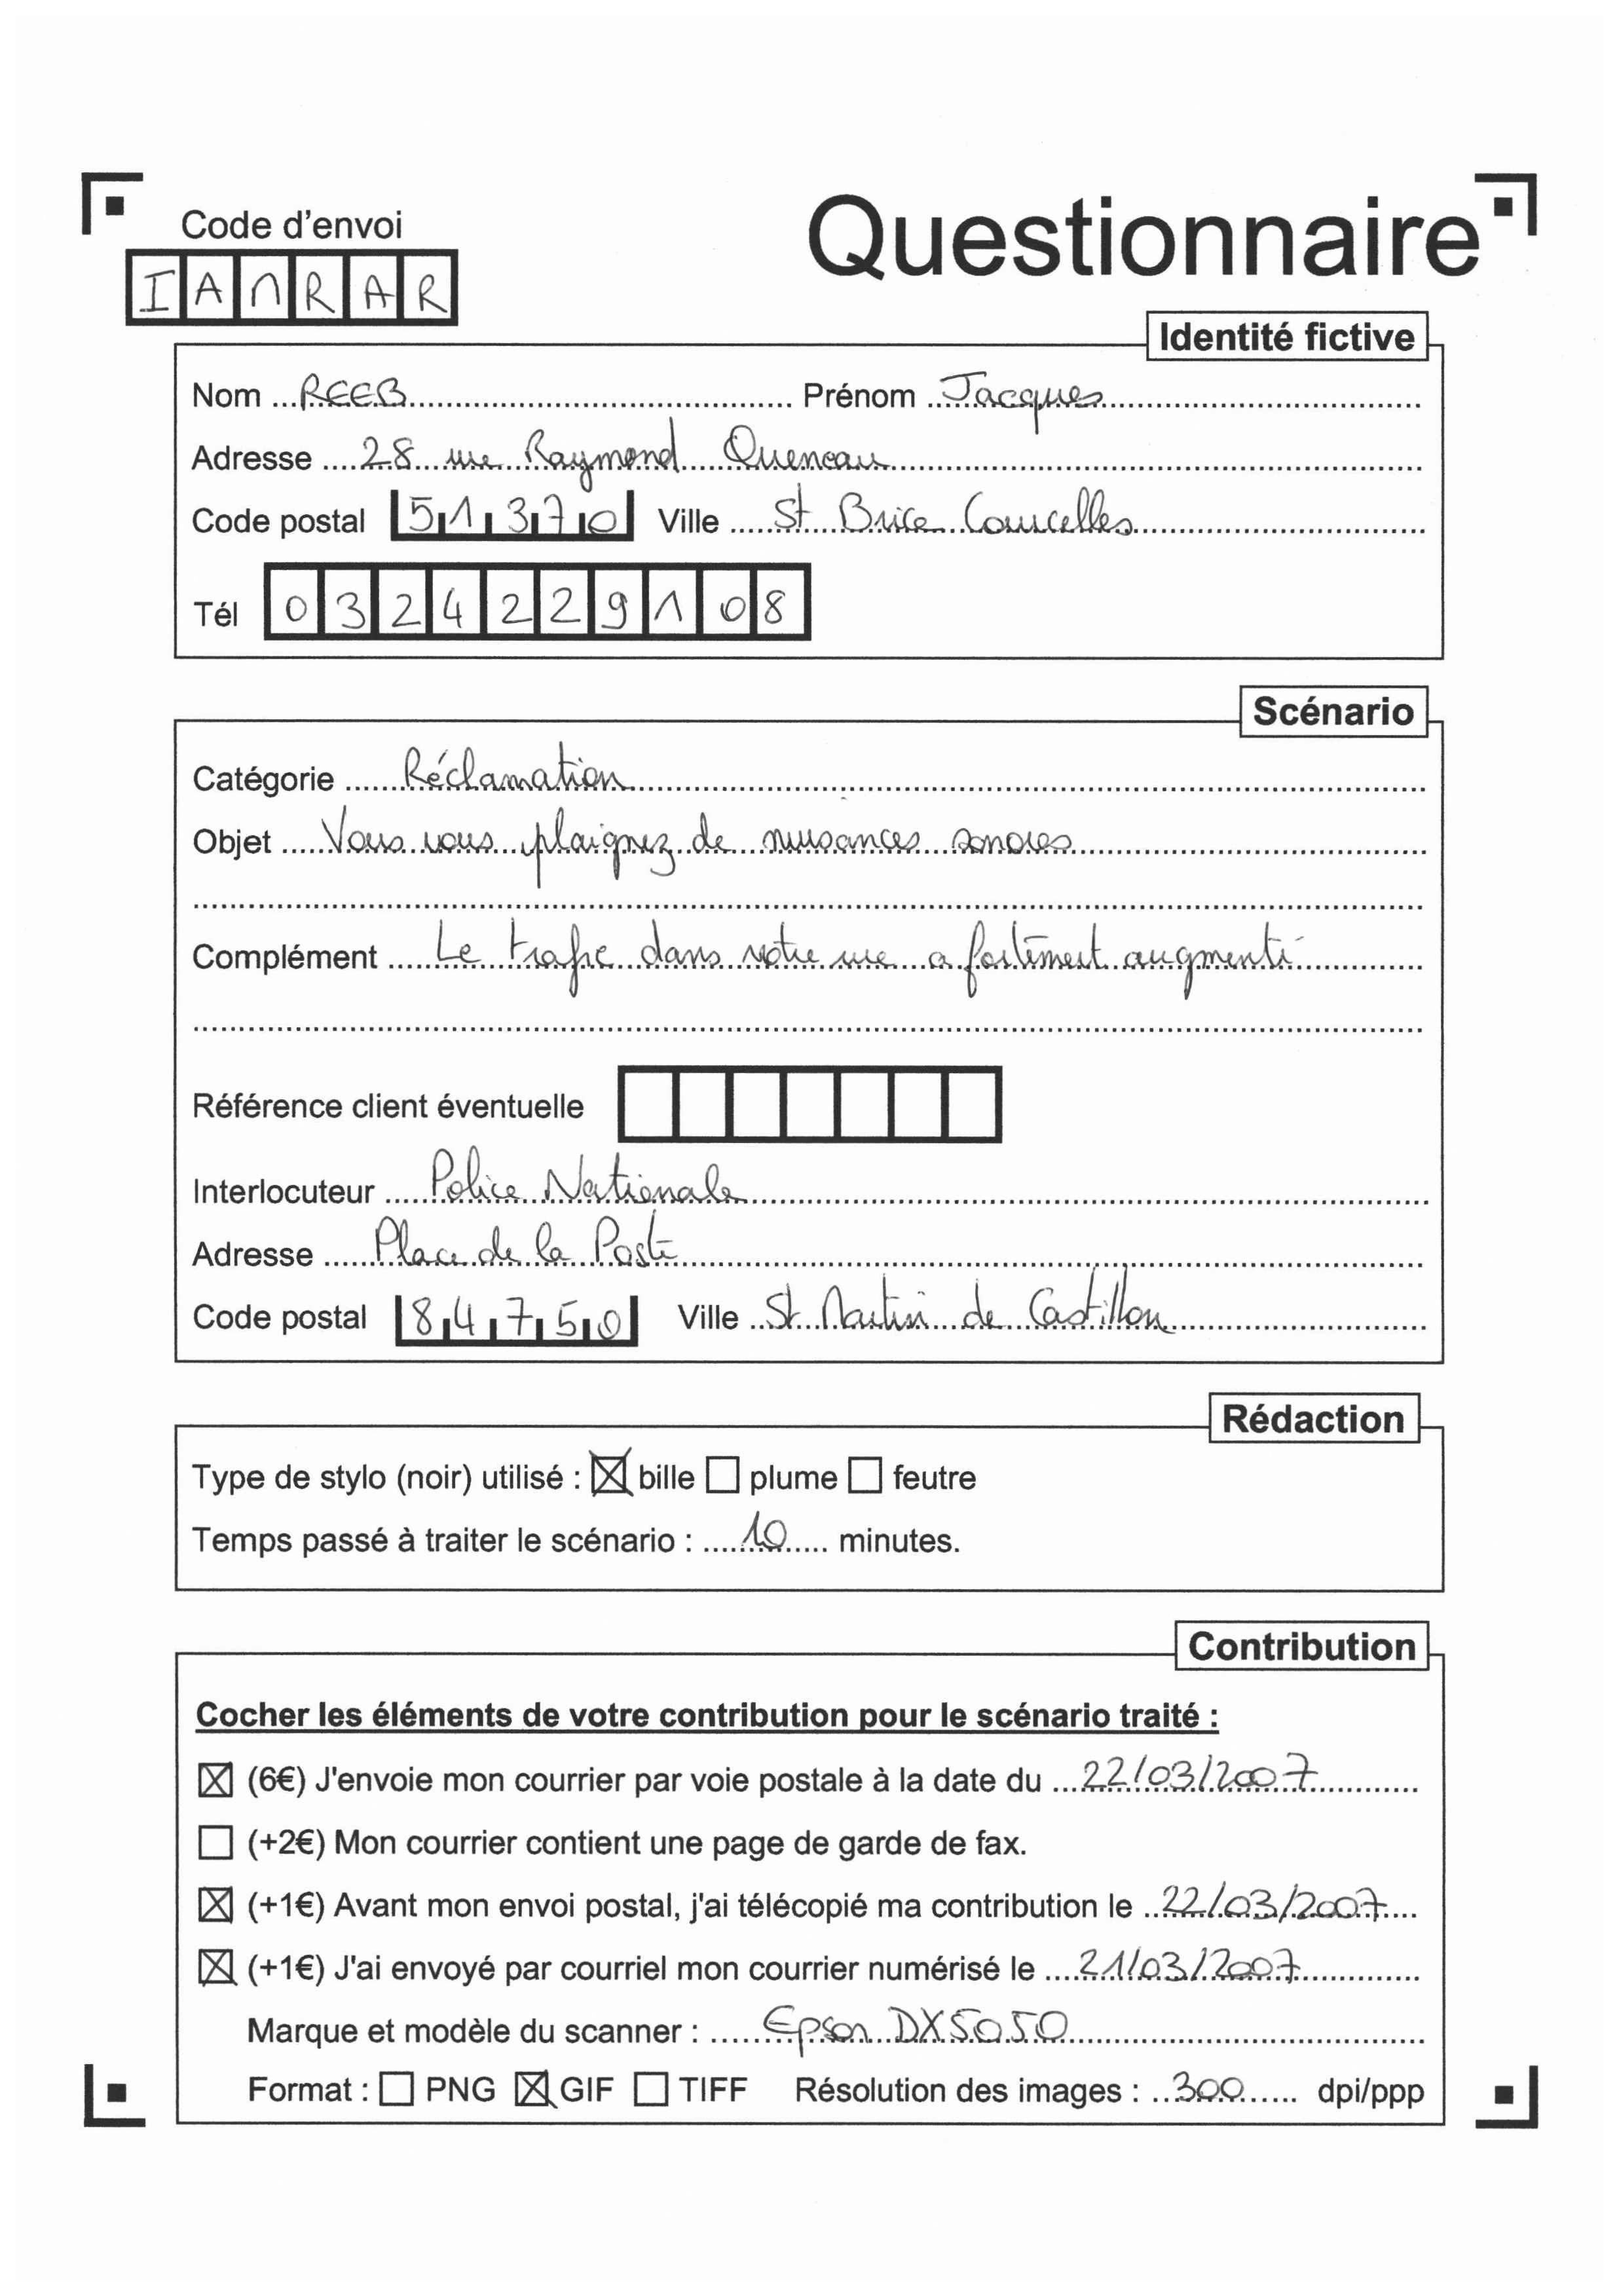 Code d'envoi
Questionnaire
IANRAR
Identité fictive
Nom REEB Prénom Jacques
Adresse 28 rue Raymond Queneau
Code postal 51370 Ville St Brice Courcelles
Tél 0324229108
Scénario
Catégorie Réclamation
Objet Vous vous plaignez de nuisances sonores
Complément Le trafic dans votre rue a fortement augmenté
Référence client éventuelle
Interlocuteur Police Nationale
Adresse Place de la Poste
Code postal 84750 Ville St Martin de Castillon
Rédaction
Type de stylo (noir) utilisé : ☒ bille ☐ plume ☐ feutre
Temps passé à traiter le scénario : 10 minutes.
Contribution
Cocher les éléments de votre contribution pour le scénario traité :
☒ (6€) J'envoie mon courrier par voie postale à la date du 22/03/2007
☐ (+2€) Mon courrier contient une page de garde de fax.
☒ (+1€) Avant mon envoi postal, j'ai télécopié ma contribution le 22/03/2007
☒ (+1€) J'ai envoyé par courriel mon courrier numérisé le 21/03/2007
Marque et modèle du scanner : Epson DX5050
Format : ☐ PNG ☒ GIF ☐ TIFF Résolution des images : 300 dpi/ppp